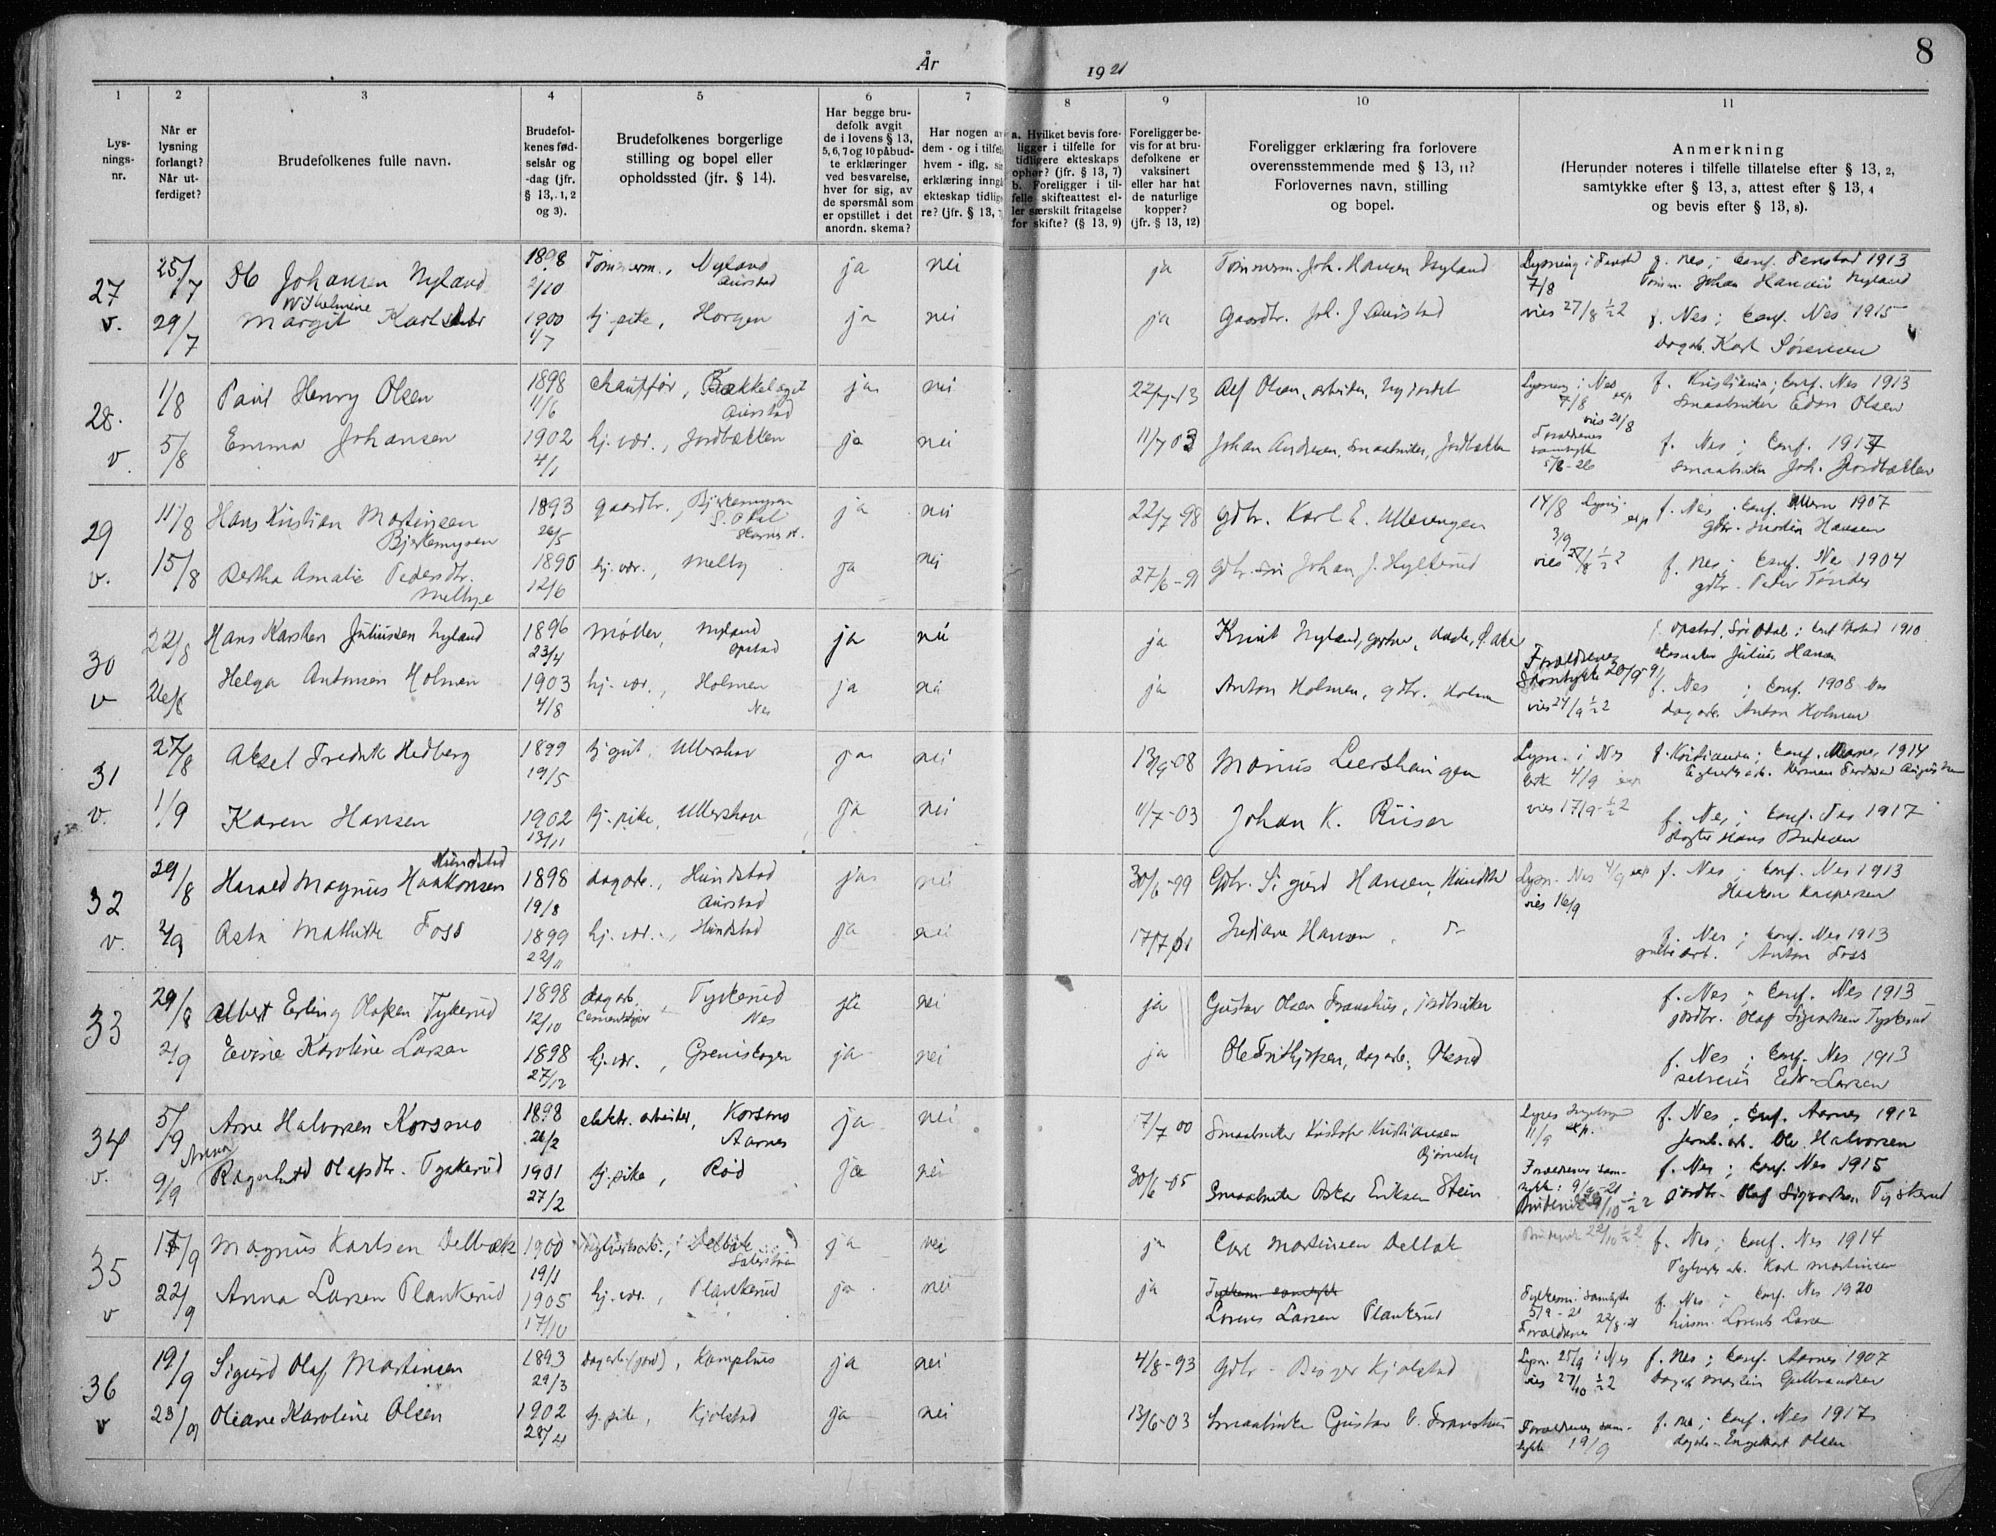 År 1921
8
1 2 3 4 5 6 7 8 9 10 11
Lys-
nings-
nr.
Når er
lysning
forlangt?
Når ut-
ferdiget?
Brudefolkenes fulle navn.
Brudefol-
kenes fød-
selsår og
-dag (jfr.
§ 13, 1, 2
og 3).
Brudefolkenes borgerlige
stilling og bopel eller
opholdssted (jfr. § 14).
Har begge bru-
defolk avgit
de i lovens § 13,
5, 6, 7 og 10 påbud-
te erklæringer
ved besvarelse,
hver for sig, av
de spørsmål som
er opstillet i det
anordn. skema?
Har nogen av
dem - og i tilfelle
hvem - iflg. sin
erklæring inngå
ekteskap tidlige-
re? (jfr. § 13,
a. Hvilket bevis fore-
ligger i tilfelle for
tidligere ekteskaps
ophør? (jfr. § 13, 7)
b. Foreligger i til-
felle skifteattest el-
ler særskilt fritagelse
for skifte? (§ 13, 9)
Foreligger be-
vis for at bru-
defolkene er
vaksinert
eller har hat
de naturlige
kopper?
(jfr. § 13, 12)
Foreligger erklæring fra forlovere
overensstemmende med § 13, 11?
Forlovernes navn, stilling
og bopel.
Anmerkning
(Herunder noteres i tilfelle tillatelse efter § 13, 2,
samtykke efter § 13, 3, attest efter § 13, 4
og bevis efter § 13, 8).
27 25/7 Johansen Nyland 1898 2/10 Tømmerm., Nyland Aurstad ja nei ja Tømmerm. Joh. Hansen Nyland Lysning i Fenstad 7/8 f. Nes; Conf. Fenstad 1913
Tømm. Johan Hansen Nyland
v. 29/7 Wilhelmine Margit Karlsdtr 1900 1/7 tj. pike, Horgen ja nei ja Gaardbr. Joh. J. Aurstad vies 27/8 ½2 f. Nes; Conf. Nes 1915
dagarb. Karl Sørensen
28. 1/8 Paul Henry Olsen 1898 11/6 chauffør, Bækkelaget Aurstad ja nei 22/7-13 Alf Olsen, arbeider, Nyjordet Lysning i Nes 7/8 exp vies 21/8 f. Kristiania; Conf. Nes 1913
Smaabruker Edv. Olsen
v. 5/8 Emma Johansen 1902 4/1 hj. vær., Jordbakken ja nei 11/7 03 Johan Andresen, Smaabruker, Jordbakken Foreldrenes samtykke f. Nes; Conf. 1917
smaabruker Joh. Jordbakken
29 11/8 Hans Kristian Martinsen Bjerkemyren 1893 26/5 gaardbr., Bjerkemyren S. Odal ja nei 22/7-98 gdbr. Karl E. Ullerengen 14/8 Lysning exp 3/9 f. Nes, Conf. Ullern 1907
gdbr. Martin Hansen
v. 15/8 Bertha Amalie Pedersdtr. Melbye 1890 12/6 hj. vær., Melby ja nei 27/6-91 gdbr. søn Johan J. Hylterud vies 27/8 ½2 f. Nes; Conf. Nes 1904
gdbr. Peder Tønder
30 22/8 Hans Karsten Juliussen Nyland 1896 23/4 Møller, Nyland Opstad ja nei ja Knut Nyland, f. Opstad, Sør Odal; Conf. 1910
Julius Hansen
v 26/8 Helga Antonsen Holmen 1903 4/8 hj. vær., Holmen Nes ja nei ja Anton Holmen, gdbr. Holmen Foreldrenes Samtykke 20/9 21 vies 24/9 ½2 f. Nes; Conf. 1908 Nes
dagarb. Anton Holmen
31 27/8 Aksel Fredrik Hedberg 1899 19/5 tj. gut, Ullershov ja nei 13/9-08 Marius Leershaugen Lysn. i Nes 4/9 exp f. Kristiania; Conf. 1914
v. 1/9 Karen Hansen 1902 13/11 tj. pike, Ullershov ja nei 11/7-03 Johan K. Riiser vies 17/9-½2 f. Nes; Conf. Nes 1917
Hans
32 29/8 Harald Magnus Haakonsen Hundstad 1898 19/8 dagarb., Hundstad Aurstad ja nei 30/6-99 Gdbr. Sigurd Hansen, Hundstad Lysn. Nes 4/9 exp vies 16/9 f. Nes; Conf. Nes 1913
Haakon Kaspersen
v. 2/9 Asta Mathilde Foss 1899 22/11 hj. vær., Hundstad ja nei 17/7 01 Indiane Hansen, f. Nes; Conf. Nes 1913
Anton Foss
33 29/8 Albert Erling Olafsen Tyskerud 1898 12/10 dagarb. Cementstøper, Tyskerud Nes ja nei ja Gustav Olsen Franshus, jordbruker f. Nes; Conf. Nes 1913
jordbr. Olaf Sigvartsen Tyskerud
2/9 Evine Karoline Larsen 1898 27/12 hj. vær., Greniskogen ja nei ja Ole Frithjofsen, dagarb., f. Nes; Conf. Nes 1913
selveier Edv. Larsen
34 5/9 Arne Halvorsen Korsmo 1898 26/2 elektr. arbeider, Korsmo Aarnes ja nei 17/7 00 Smaabruker Kristofer Kristiansen Bjørneby 11/9 exp. f. Nes; Conf. Aarnes 1912
jernb. arb. Ole Halvorsen
v. 9/9 Anna Ragnhild Olafsdtr. Tyskerud 1901 27/2 tj. pike, Rød ja nei 30/6-05 Smaabruker Oskar Eriksen Stein Foreldrenes samtykke: 9/9-21 f. Nes; Conf. Nes 1915
jordbr. Olaf Sigvartsen Tyskerud
35 17/9 Magnus Karlsen Delbæk 1900 19/1 Teglverksarb., Delbæk ja nei ja Carl Martinsen Delbæk 22/10 ½2 f. Nes; Conf. Nes 1914
Teglverks arb. Karl Martinsen
v 22/9 Anna Larsen Plankerud 1905 17/10 hj. vær., Plankerud ja nei ja Lorens Larsen Plankerud Fylkesm. samtykke 5/9-21 Foreldrenes 22/8-21 f. Nes; Conf. Nes 1920
Lorents Larsen
36 19/9 Sigurd Olaf Martinsen 1893 29/3 Dagarb. (jord), Kamphus ja nei 4/8-93 Gdbr. Birger Kjølstad Lysn. 25/9 i Nes vies 27/10 ½2 f. Nes; Conf. Aarnes 1907
Dagarb. Martin Gulbrandsen
v 23/9 Oliane Karoline Olsen 1902 28/4 tj. pike, Kjølstad ja nei 13/6-03 Smaabruker Gustav O. Franshus Foreldrenes samtykke 19/9 f. Nes; Conf. Nes 1917
dagarb. Engelhart Olsen